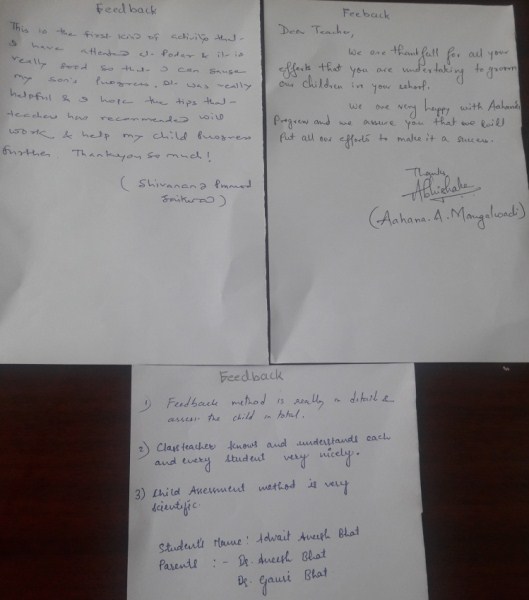 Feedback
This is the first kind of activity that
I have attended at Podar & it is
really good so that I can gauge
my son's Progress. It was really
helpful & I hope the tips that
teachers have recommended will
work & help my child Progress
further Thankyou so much!
(Shivanand Pramod
)
Feeback
Dear Teacher,
We are thankfull for all your
efforts that you are undertaking to groom
our children in your school.
We are very happy with Aahana's
Progress and we assure you that we will
Put all our efforts to make it a success.
Thanks
(Aahana. A. Mangalwadi)
Feedback
1) Feedback method is really in detail &
assess the child in total.
2) Classteacher knows and understands each
and every student very nicely.
3) Child Assessment method is very
scientific.
Student's Name : Adwait Aneesh Bhat
Parents : - Dr. Aneesh Bhat
Dr. Gauri Bhat